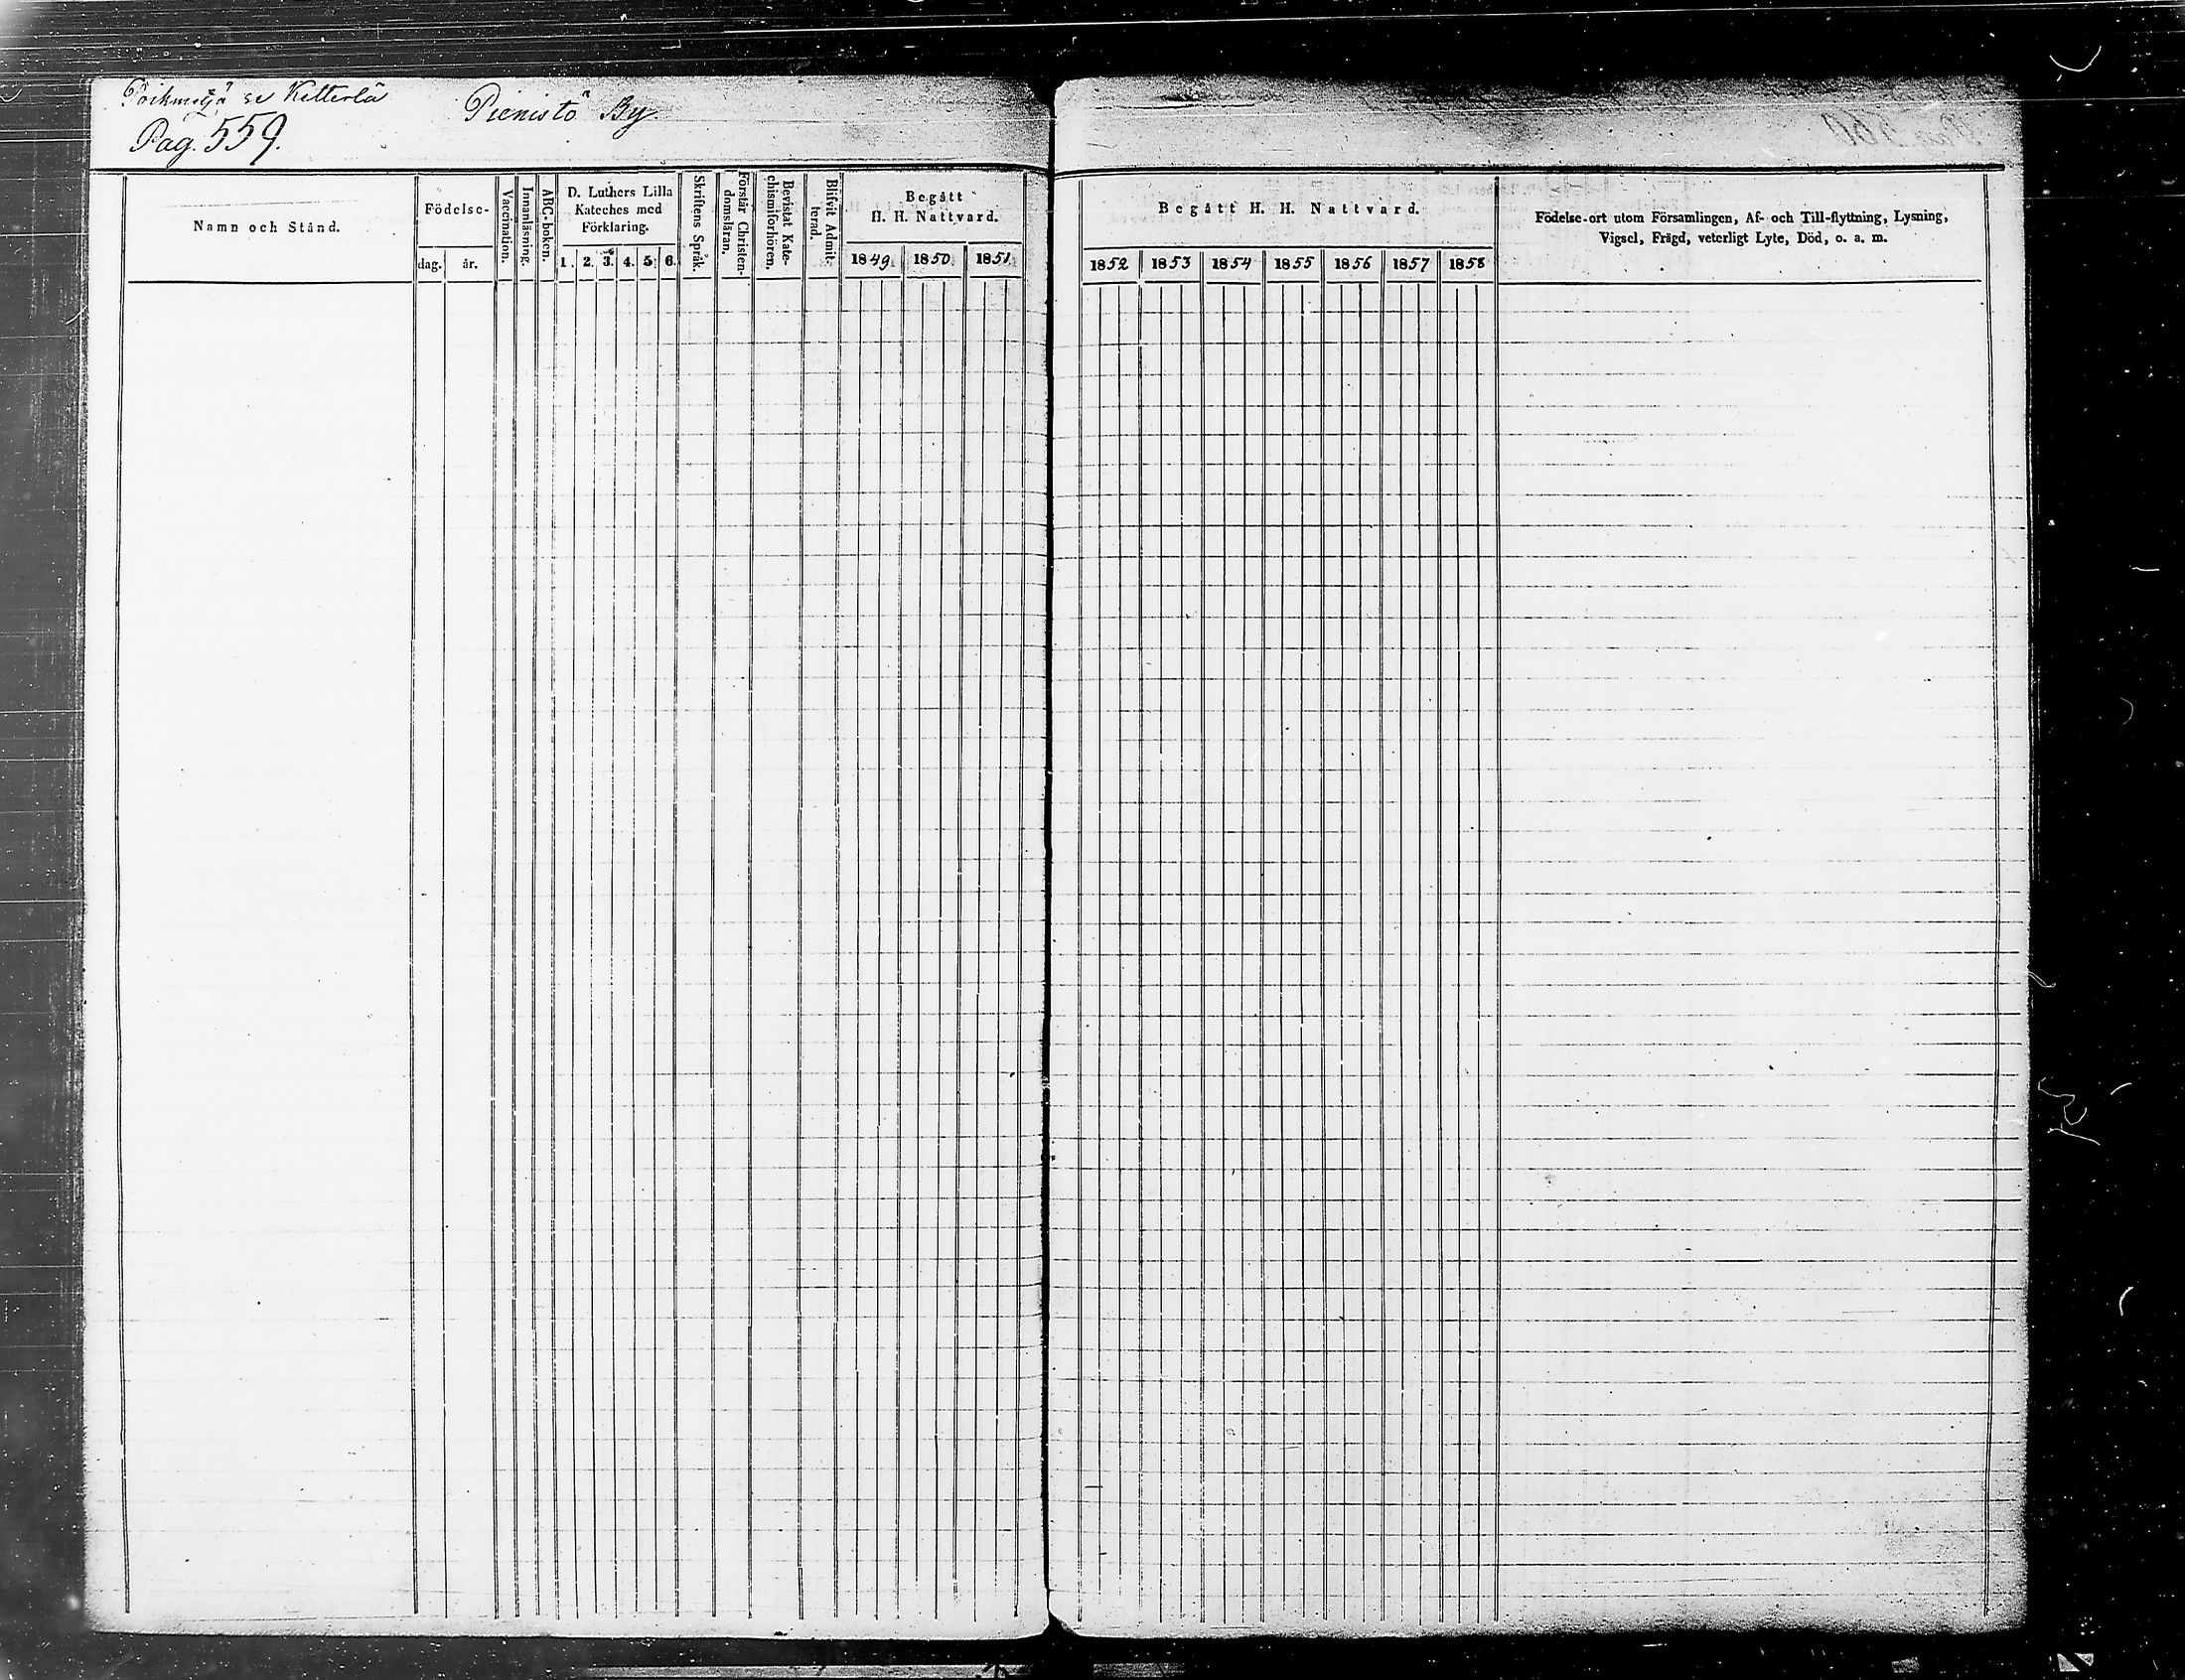 Poikmetjä se Ketterlä
Pienistö By
Pag. 559.
Namn och Stånd.
Födelse-
dag.
år.
Vaccination.
Innanläsning.
ABC-boken.
D. Luthers Lilla
Kateches med
Förklaring.
1. 2. 3. 4. 5. 6.
Skriftens Språk.
Förstår Christen-
domsläran.
Bevistat Kate-
chismiförhören.
Blifvit Admit-
terad.
Begått
H. H. Nattvard.
1849. 1850. 1851.
Begått H. H. Nattvard.
1852 1853 1854 1855 1856 1857 1858
Födelse-ort utom Församlingen, Af- och Till-flyttning, Lysning,
Vigsel, Frägd, veterligt Lyte, Död, o. a. m.